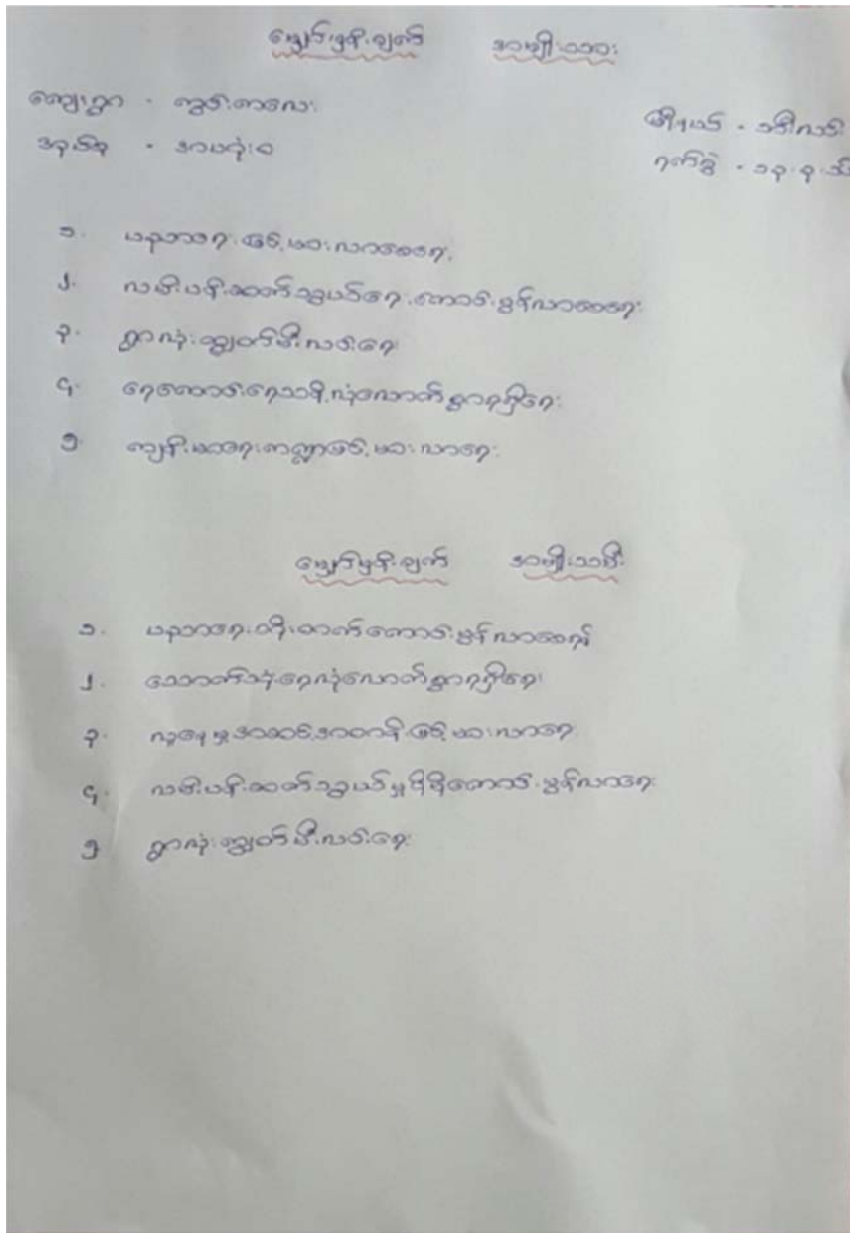 မျှော်မှန်းချက် အမျိုးသား
ကျေးရွာ - ကွင်းကလေး
မြို့နယ် - သီ
အုပ်စု -
ရက်စွဲ - ၁၃.၃.
၁. ပညာရေး မြင့်မားလာစေရေး
၂. လမ်းပန်းဆက်သွယ်ရေး ကောင်းမွန်လာစေရေး
၃. ရွာလုံးကျွတ်မီးလင်းရေး
၄. ရေကောင်းရေသန့် လုံလောက်စွာရရှိရေး
၅. ကျန်းမာရေးကဏ္ဍမြင့်မားလာရေး
မျှော်မှန်းချက် အမျိုးသမီး
၁. ပညာရေးတိုးတက်ကောင်းမွန်လာစေရန်
၂. သောက်သုံးရေလုံလောက်စွာရရှိရေး
၃. လူနေမှုအဆင့်အတန်းမြင့်မားလာရေး
၄. လမ်းပန်းဆက်သွယ်မှုပိုမိုကောင်းမွန်လာရေး
၅ ရွာလုံးကျွတ်မီးလင်းရေး